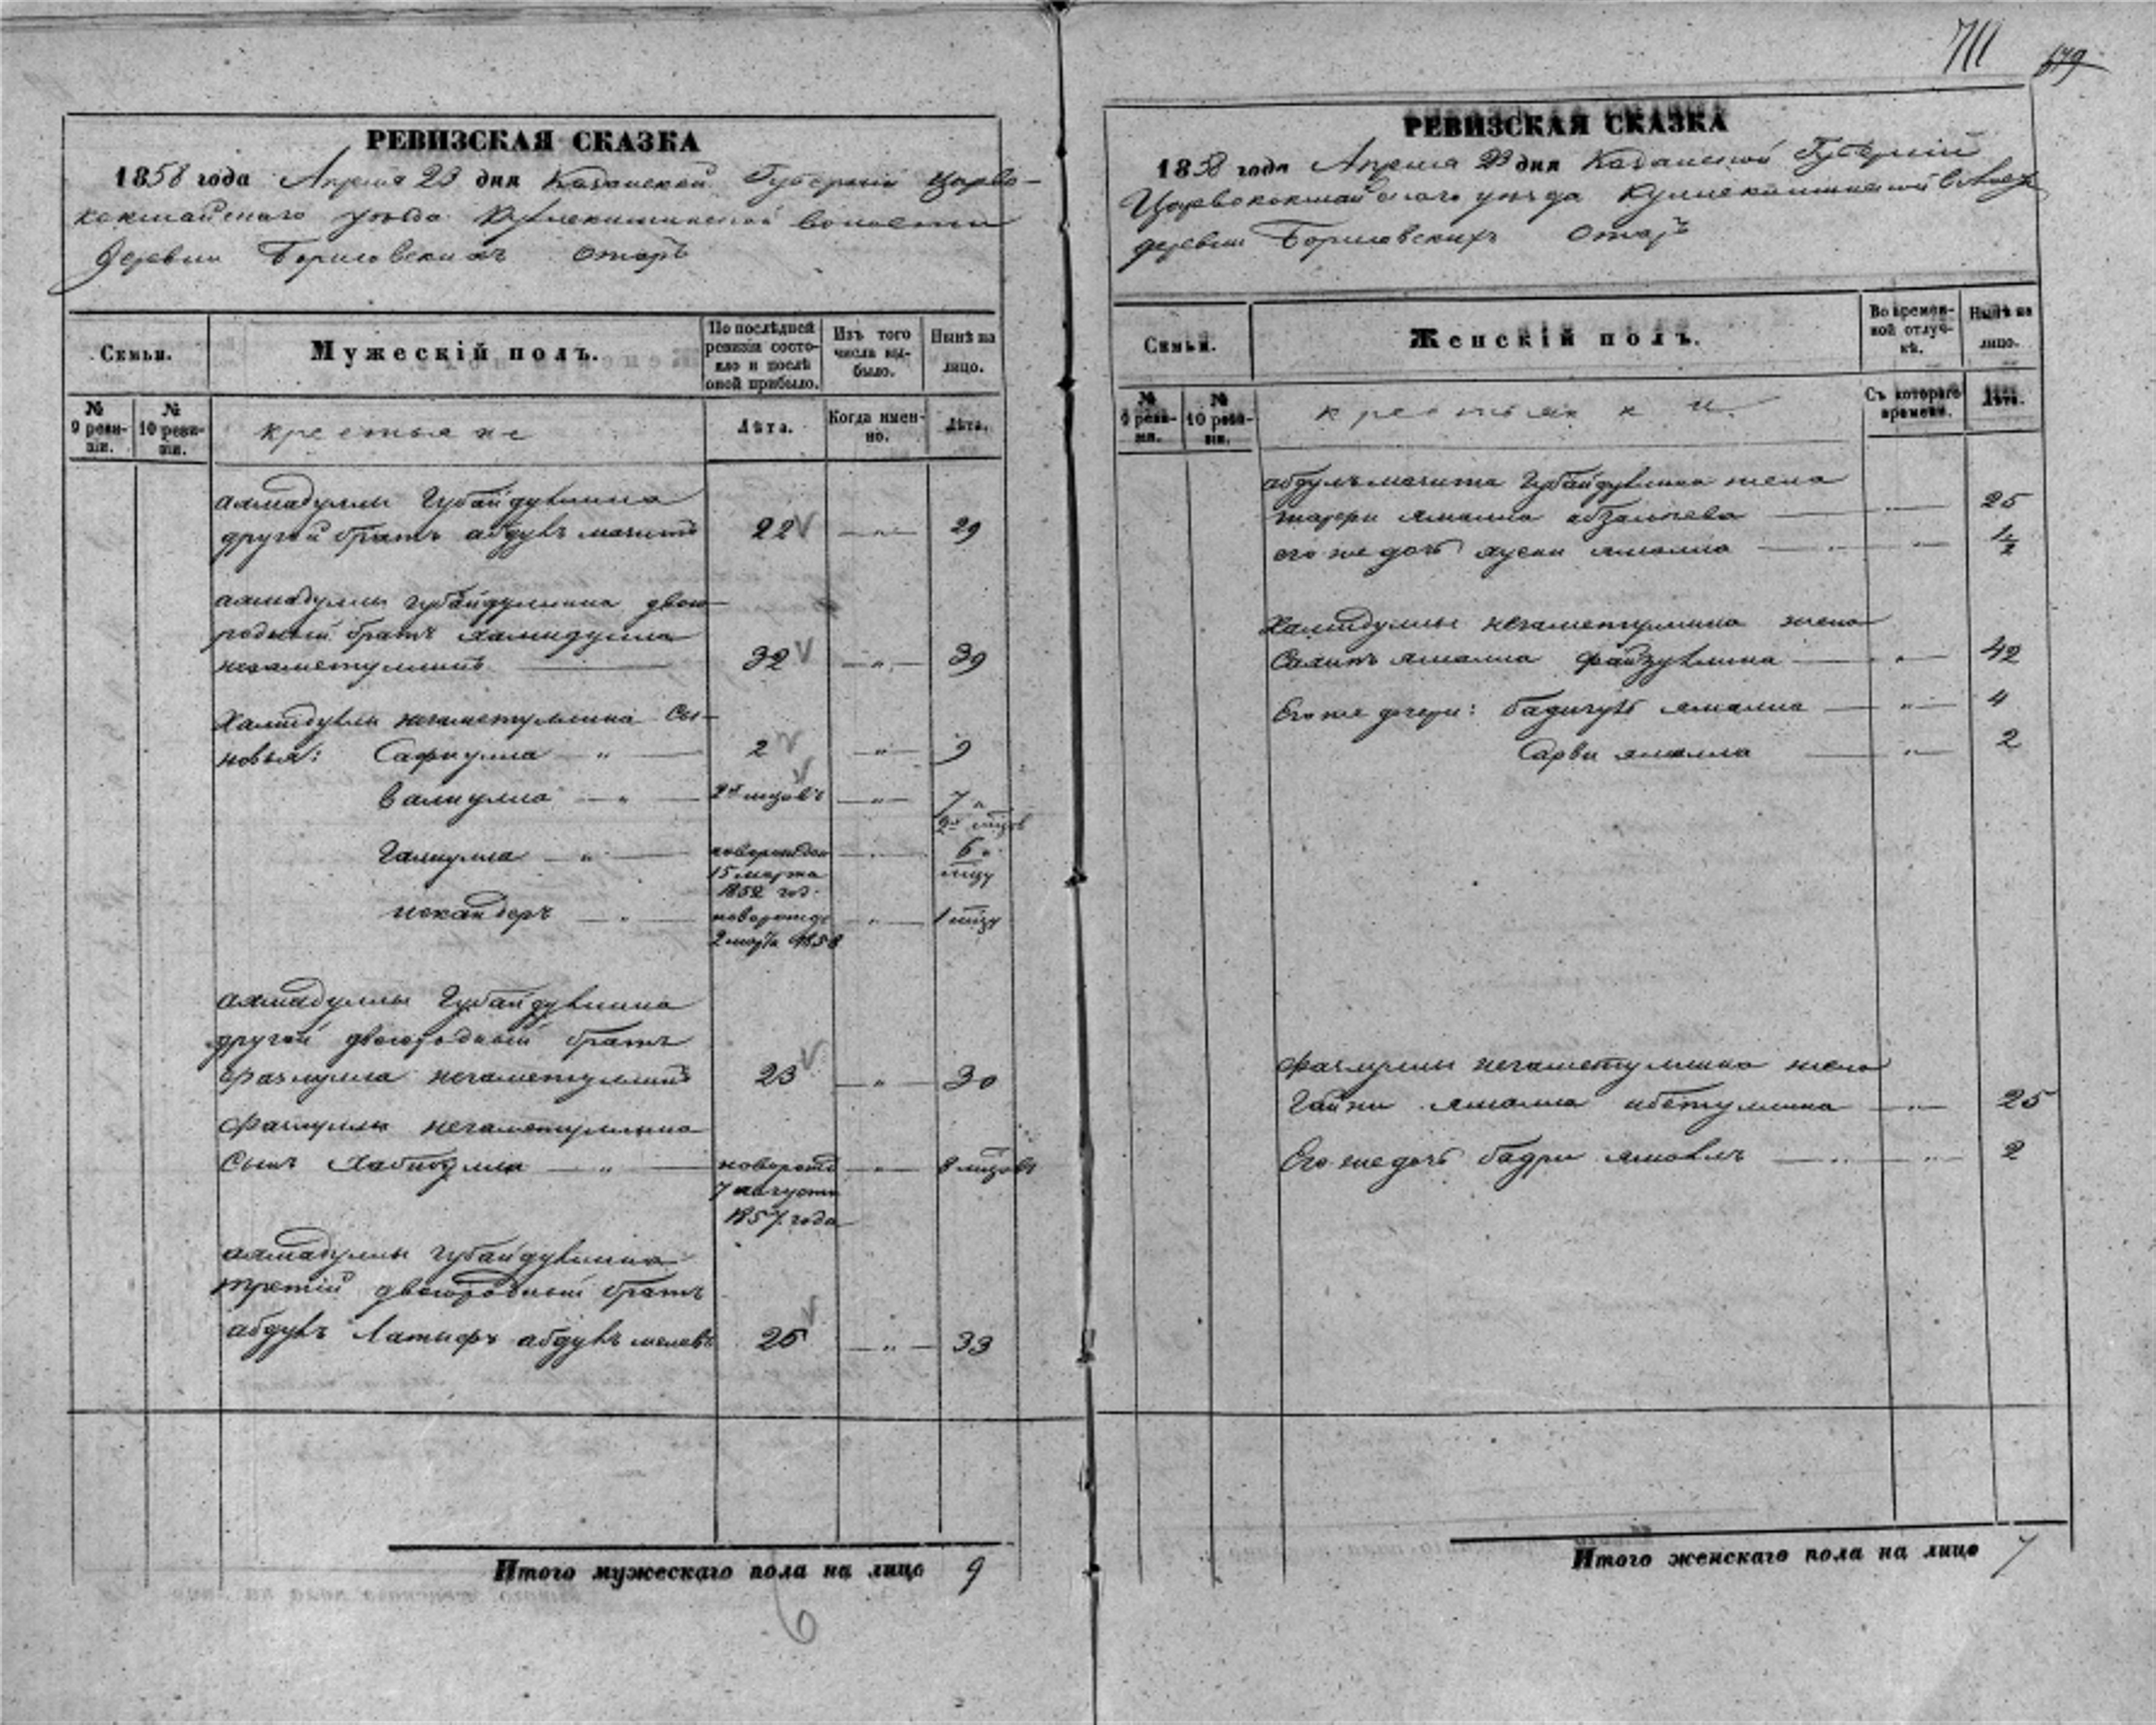 711
679
РЕВИЗСКАЯ СКАЗКА
1858 года Апреля 23 дня Казанской Губернии Царево-
кокшайского уезда Кулле-Киминской волости
Деревни Борисовских Отаръ
Семьи.
Мужескій полъ.
По послѣдней ревизіи состояло и послѣ оной прибыло.
Изъ того числа выбыло.
Нынѣ на лицо.
№ 9 ревизіи.
№ 10 ревизіи.
крестьяне
Лѣта.
Когда именно.
Лѣта.
ахмадуллы Губайдуллина
другой братъ абдулъ мачитъ 22 — " — 29
ахмадуллы губайдуллина двою-
родный братъ халидулла
негаметуллинъ 32 — " — 39
Халидуллы негаметуллина сы-
новья: Сафиулла — " — 2 — " — 9
Валиулла — " — — " — 7
Галиулла — " — новорожден — " — 6
15 марта
1852 год
искандеръ — " — новорожд — " — 1 мцу
2 марта 1858
ахмадуллы Губайдуллина
другой двоюродный братъ
фазлулла негаметуллинъ 23 — " — 30
фазлуллы негаметуллина
сынъ Хабиулла — " — новорожд — " — 8 мцовъ
7 августа
1857 года
ахмадуллы губайдуллина
третій двоюродный братъ
абдулъ Латифъ абдулъ 26 — " — 33
Итого мужескаго пола на лицо 9
6
РЕВИЗСКАЯ СКАЗКА
1858 года Апреля 23 дня Казанской Губерніи
Царевококшайского уезда
деревни Борисовскихъ Отаръ
Семьи.
Женскій полъ.
Во временной отлучкѣ.
Нынѣ на лицо.
№ 9 ревизіи.
№ 10 ревизіи.
крестьянки.
Съ котораго времени.
Лѣта.
абдулъ мачита Губайдуллина жена
— " — 25
его же дочь — " — 1/2
Халидуллы негаметуллина жена
файзуллина — " — 42
Его же дочери: — " — 4
Сарви — " — 2
фазлуллы негаметуллина жена
— " — 25
Его же дочь бадри — " — 2
Итого женскаго пола на лицо 7